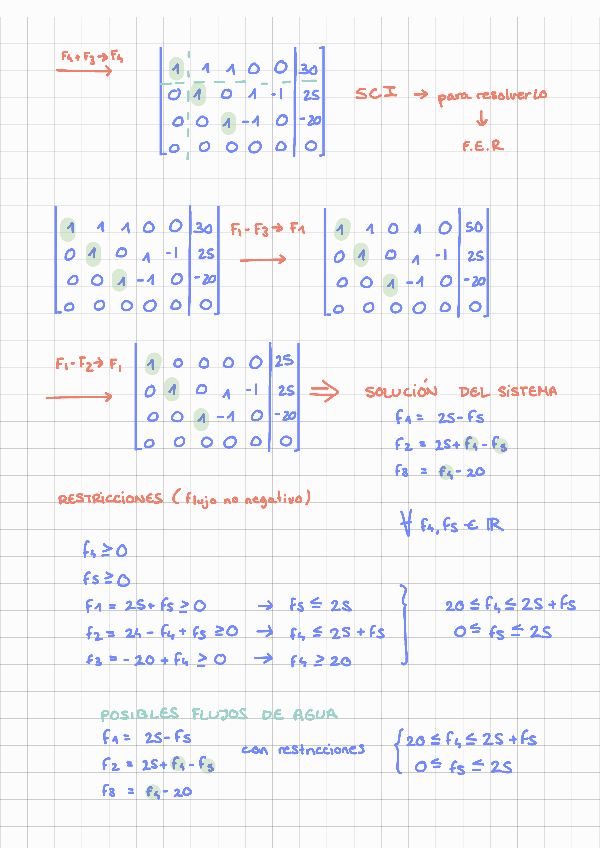 F4 + F3 → F4
1 1 1 0 0 | 30
0 1 0 1 -1 | 25
0 0 1 -1 0 | -20
0 0 0 0 0 | 0
SCI → para resolverlo
↓
F.E.R
1 1 1 0 0 | 30
0 1 0 1 -1 | 25
0 0 1 -1 0 | -20
0 0 0 0 0 | 0
F1 - F3 → F1
1 1 0 1 0 | 50
0 1 0 1 -1 | 25
0 0 1 -1 0 | -20
0 0 0 0 0 | 0
F1 - F2 → F1
1 0 0 0 0 | 25
0 1 0 1 -1 | 25
0 0 1 -1 0 | -20
0 0 0 0 0 | 0
⇒ SOLUCIÓN DEL SISTEMA
f1 = 25 - f5
f2 = 25 + f4 - f5
f3 = f4 - 20
∀ f4, f5 ∈ ℝ
RESTRICCIONES (flujo no negativo)
f4 ≥ 0
f5 ≥ 0
f1 = 25 + f5 ≥ 0 → f5 ≤ 25
f2 = 24 - f4 + f5 ≥ 0 → f4 ≤ 25 + f5
f3 = -20 + f4 ≥ 0 → f4 ≥ 20
20 ≤ f4 ≤ 25 + f5
0 ≤ f5 ≤ 25
POSIBLES FLUJOS DE AGUA
f1 = 25 - f5
f2 = 25 + f4 - f5
f3 = f4 - 20
con restricciones
20 ≤ f4 ≤ 25 + f5
0 ≤ f5 ≤ 25